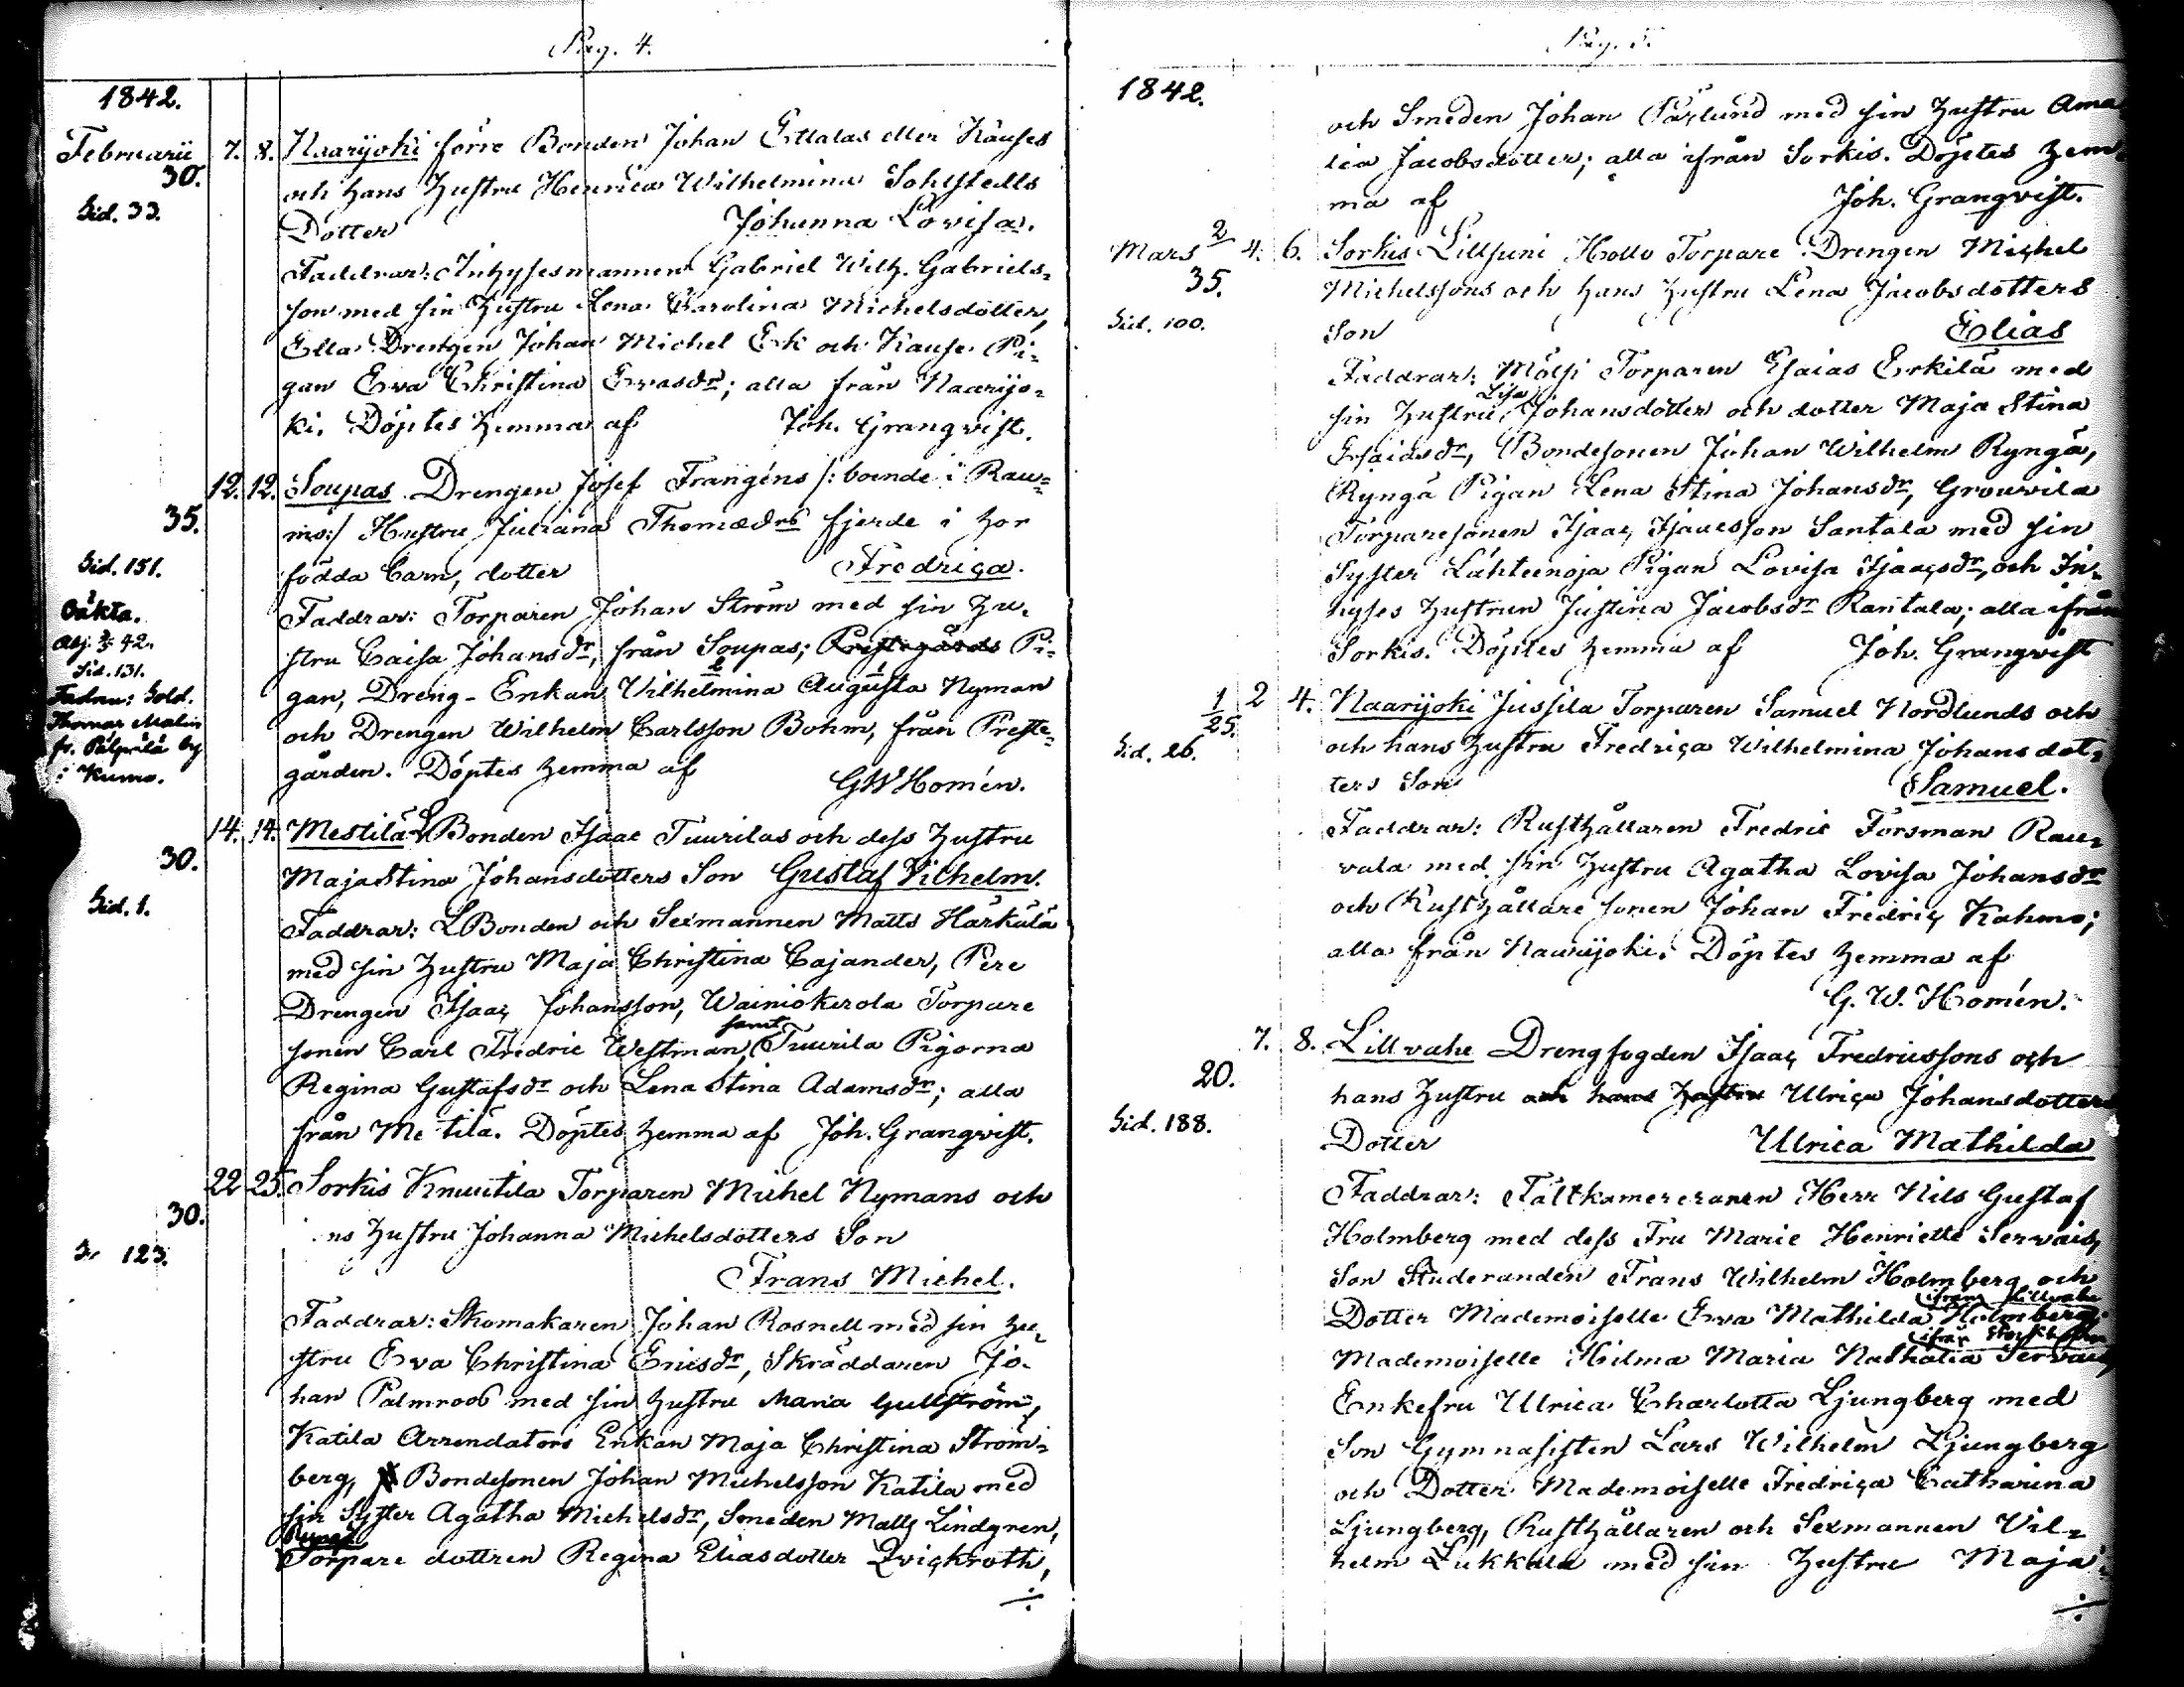 Pag. 4.
1842.
Februarii 7. 8. Naarijoki förre Bonden Johan Ellalas eller Kauses
30.
och hans Hustru Henrica Wilhelmina Sohlstedts
Sid. 33.
Dotter Johanna Lovisa.
Faddrar: Inhysesmannen Gabriel Wilh. Gabriels-
son med sin Hustru Lena Carolina Michelsdotter,
Ella Drengen Johan Michel Erk och Kause Pi-
gan Eva Christina Evasdr; alla från Naarijo-
ki. Döptes hemma af Joh. Granqvist.
12. 12. Soupas Drengen Josef Frangéns /: boende i Rau-
35.
mo:/ Hustru Juliana Thomædrs fjerde i hor
Sid. 151.
födda barn, dotter Fredrica.
Oäkta.
Faddrar: Torparen Johan Ström med sin Hu-
Abj. 42.
Sid. 131.
stru Caisa Johansdr, från Soupas; Prestegårds Pi-
Fadren: Sold.
gan, Dreng-Enkan Wilhelmina Augusta Nyman
Thomas Malin
och Drengen Wilhelm Carlsson Bohm, från Preste-
fr. by
i Kumo.
gården. Döptes hemma af GWHomén.
14. 14. Mestilä Bonden Isaac Tuurilas och dess Hustru
30.
Maja Stina Johansdotters Son Gustaf Vilhelm.
Sid. 1.
Faddrar: LBonden och Sexmannen Matts Härkälä
med sin Hustru Maja Christina Cajander, Pere
Drengen Isaac Johansson, Wainiokerola Torpare
sonen Carl Fredric Westman, samt Tuurila Pigorna
Regina Gustafsdr och Lena Stina Adamsdr; alla
från Me tilä. Döptes hemma af Joh. Granqvist.
22 25. Sorkis Knuutila Torparen Michel Nymans och
30.
ns Hustru Johanna Michelsdotters Son
123.
Frans Michel.
Faddrar: Skomakaren Johan Rosnell med sin Hu-
stru Eva Christina Ericsdr, Skräddaren Jo-
han Palmroos med sin Hustru Maria Gullström,
Katila Arrendators Enkan Maja Christina Ström-
berg, Bondesonen Johan Michelsson Katila med
sin Syster Agatha Michelsdr, Smeden Matts Lindgren,
Torpare dottren Regina Eliasdotter Qvickroth,
Pag. 5.
1842.
och Smeden Johan Pärlund med sin Hustru Ama
lia Jacobsdotter; alla ifrån Sorkis. Döptes hem-
ma af Joh. Granqvist.
Mars 2 4. 6. Sorkis Lillsuni Hollo Torpare Drengen Michel
35.
Michelssons och hans Hustru Lena Jacobsdotters
Sid. 100.
Son Elias
Faddrar: Mölsi Torparen Esaias Erkilä med
sin Hustru Lisa Johansdotter och dotter Maja Stina
Esaiasdr, Bondesonen Johan Wilhelm Ryngä,
Ryngä Pigan Lena Stina Johansdr, Grouvila
Torparesonen Isaac Isaacsson Santala med sin
Syster Lähteenoja Pigan Lovisa Isaacsdr, och In-
hyses Hustrun Justina Jacobsdr Rantala; alla ifrån
Sorkis. Döptes hemma af Joh. Granqvist
1 2 4. Naarijoki Jussila Torparen Samuel Nordlunds och
25.
Sid. 26.
och hans Hustru Fredrica Wilhelmina Johansdot-
ters Son Samuel.
Faddrar: Rusthållaren Fredric Forsman Rau-
vala med sin Hustru Agatha Lovisa Johansdr
och Rusthållare sonen Johan Fredric Kahmo;
alla från Naarijoki. Döptes hemma af
G. W. Homén.
7. 8. Lillvahe Drengfogden Isaac Fredricssons och
20.
hans Hustru och hans Hustru Ulrica Johansdotters
Sid. 188.
Dotter Ulrica Mathilda
Faddrar: Fältkamereraren Herr Nils Gustaf
Holmberg med dess Fru Marie Henriette Servais,
Son Studeranden Frans Wilhelm Holmberg och
Dotter Mademoiselle Eva Mathilda Holmberg ifrån Lillvahe
Mademoiselle Hilma Maria Nathalia Servais ifrån Stockholm
Enkefru Ulrica Charlotta Ljungberg med
Son Gymnasisten Lars Wilhelm Ljungberg
och Dotter Mademoiselle Fredrica Catharina
Ljungberg, Rusthållaren och Sexmannen Vil-
helm Lukkala med sin Hustru Maja